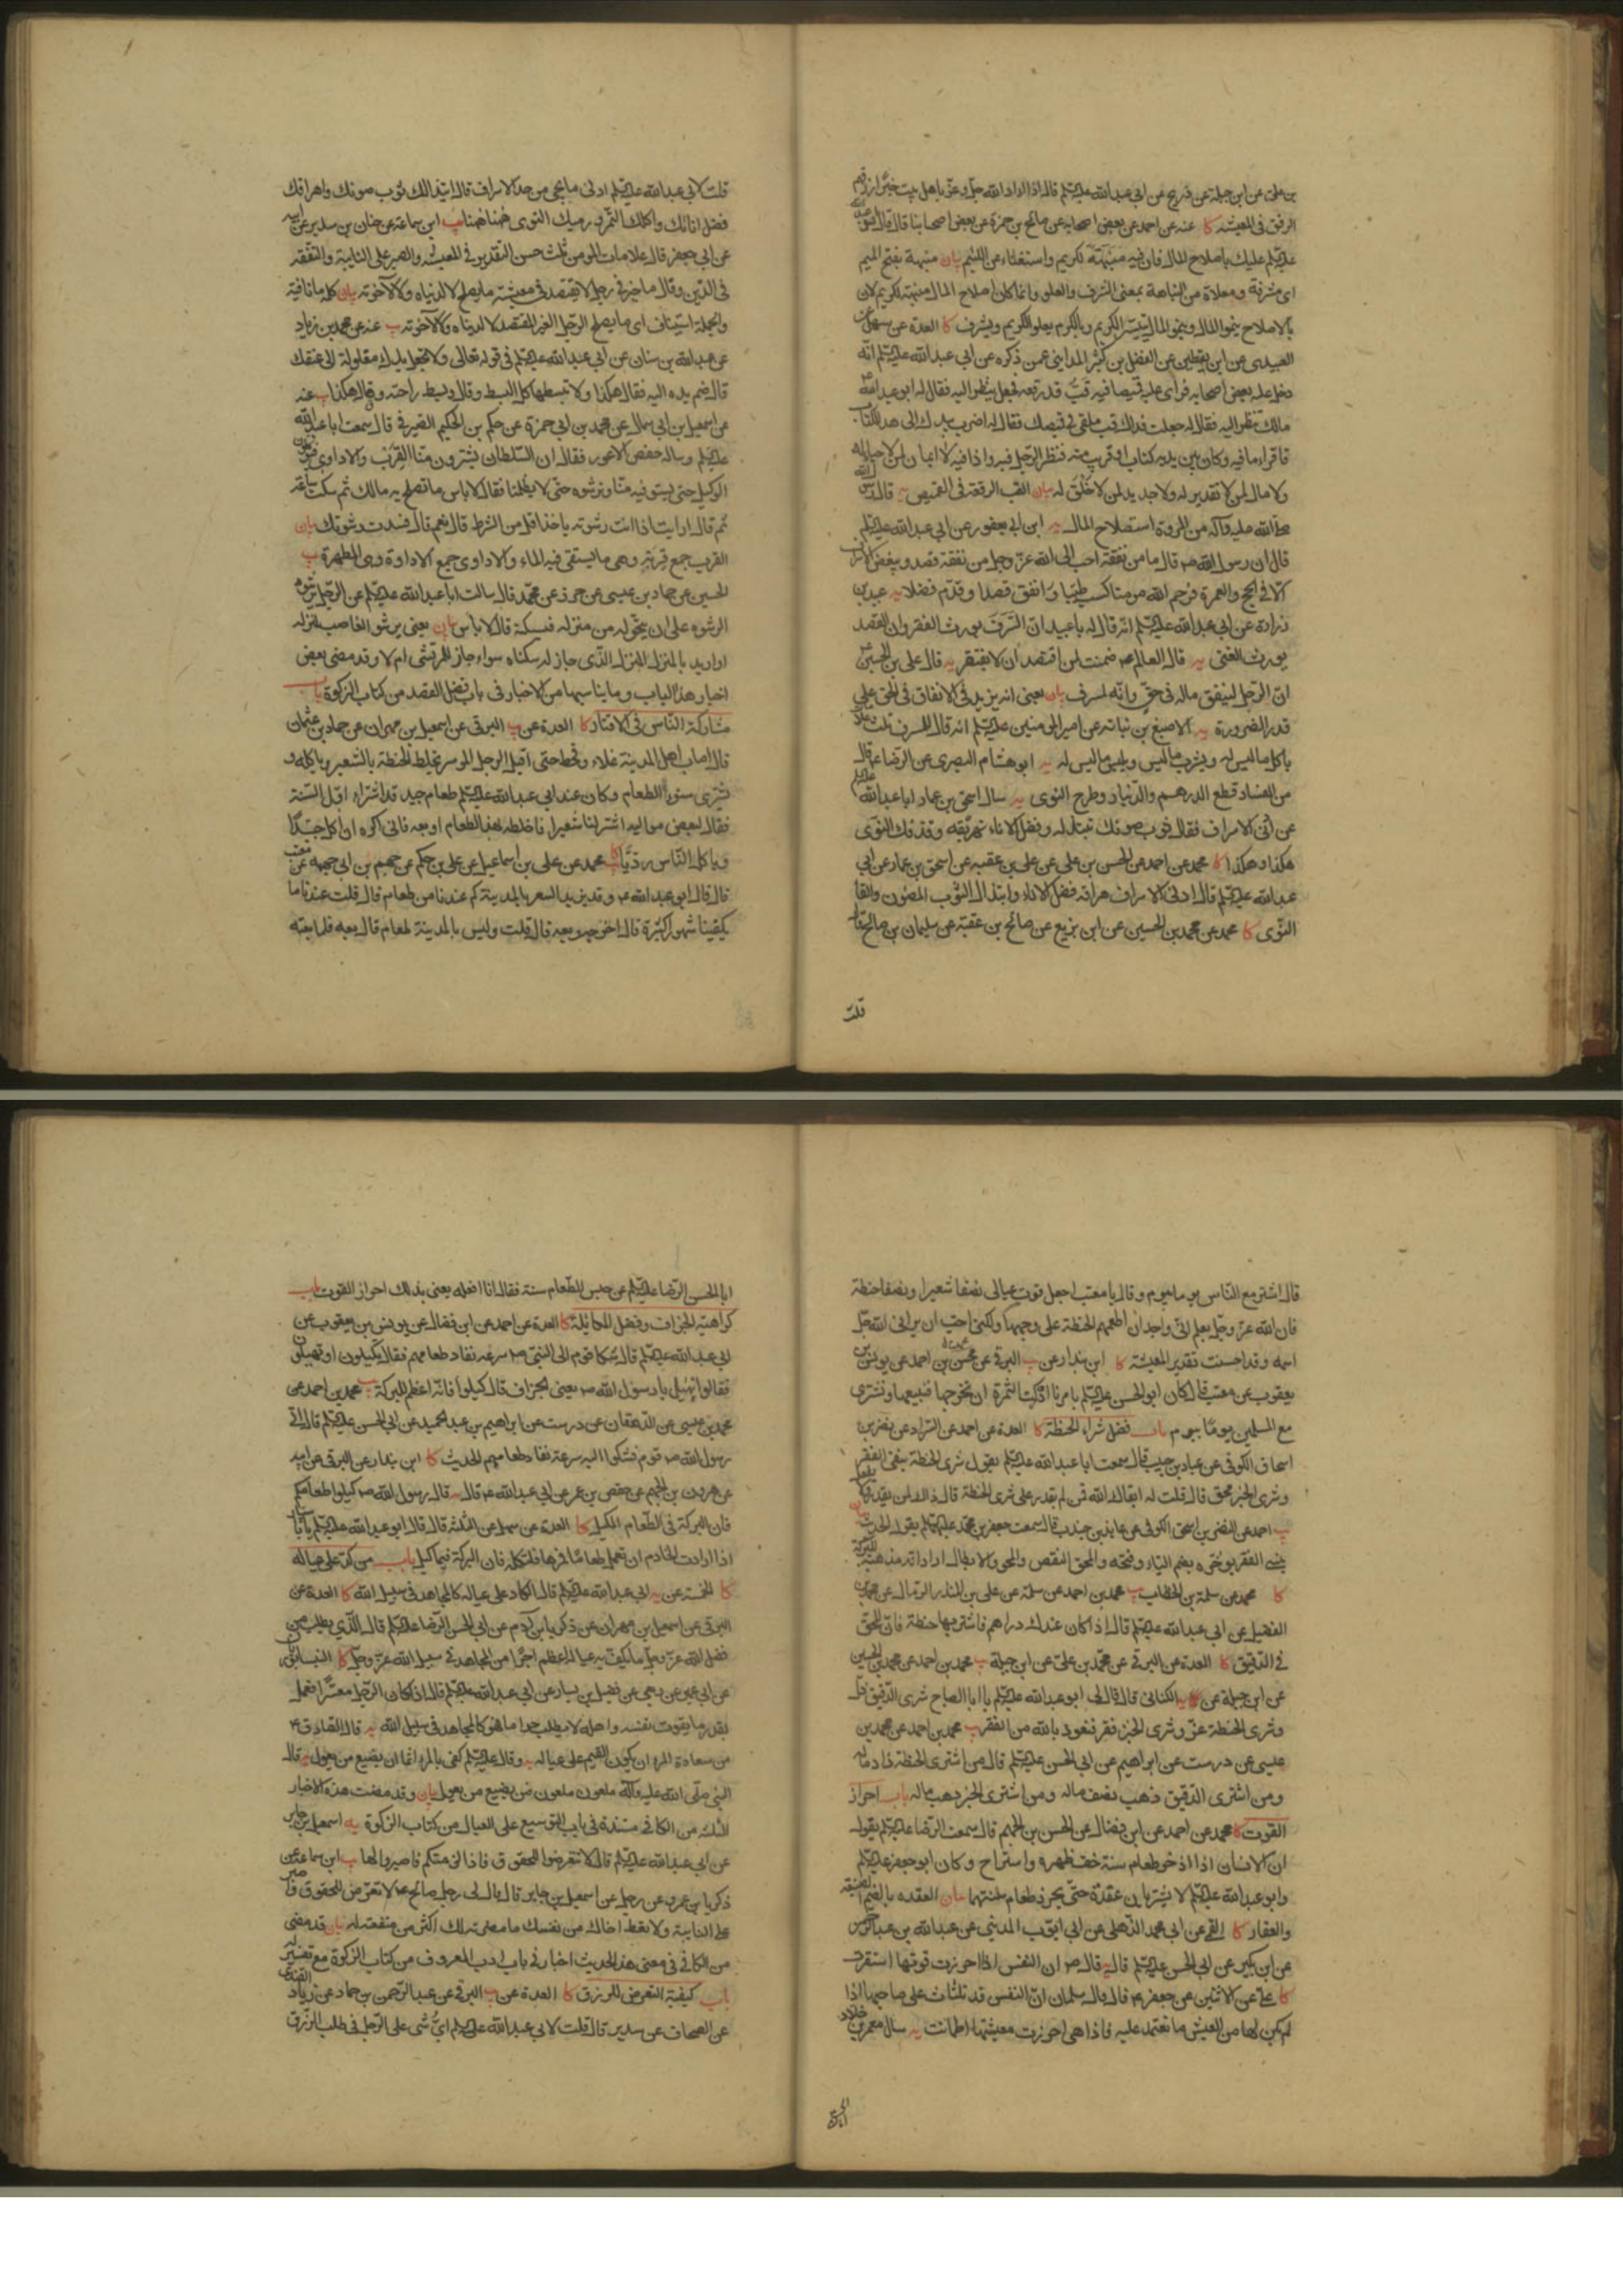 بن علی عن ابن جبلة عن ذریح عن ابی عبدالله علیه‌السلم قال اذا اراد الله جل وعز باهل بیت خیرا رزقهم
الرفق فی المعیشه کا عنه عن احمد عن بعض اصحابه عن صالح بن حمزة عن بعض اصحابنا قال قال ابو عبدالله
علیه‌السلم علیك باصلاح المال فان فیه منبهة للکریم واستغناء عن اللئیم بیان منبهة بفتح المیم
ای مشرفة ومعلاة من النباهة بمعنی الشرف والعلو وانما کان اصلاح المال منبهة للکریم لان
بالاصلاح ینمو المال وبنمو المال یتیسر الکریم وبالکرم یعلو الکریم ویشرف کا العدة عن سهل عن
العبیدی عن ابن یقطین عن الفضل بن کثیر المداینی عمن ذکره عن ابی عبدالله علیه‌السلم انه
دخل علیه بعض اصحابه فرای علیه قمیصا فیه قب قد رقعه فجعل ینظر الیه فقال له ابو عبدالله ع
مالك تنظر الیه فقال له جعلت فداك قب ملقی فی قمیصك فقال له اضرب بیدك الی هذا الکتاب
فاقرا ما فیه وکان بین یدیه کتاب او قریب منه فنظر الرجل فیه واذا فیه لا ایمان لمن لا حیاء له
ولا مال لمن لا تقدیر له ولا جدید لمن لا خلق له بیان القب الرقعة فی القمیص یه قال رسول الله
صلی الله علیه وآله من المروة استصلاح المال یه ابن ابی یعفور عن ابی عبدالله علیه‌السلم
قال ان رسول الله ص قال ما من نفقة احب الی الله عز وجل من نفقة قصد ویبغض الاسراف
الا فی الحج والعمرة فرحم الله مومنا کسب طیبا وانفق قصدا وقدم فضلا یه عبید بن
زرارة عن ابی عبدالله علیه‌السلم انه قال له یا عبید ان السرف یورث الفقر وان القصد
یورث الغنی یه قال العالم ع ضمنت لمن اقتصد ان لا یفتقر یه قال علی بن الحسین ع
ان الرجل لینفق ماله فی حق وانه لمسرف بیان یعنی انه یزید فی الانفاق فی الحق علی
قدر الضرورة یه الاصبغ بن نباته عن امیر المومنین علیه‌السلم انه قال للمسرف ثلث علامات
یاکل ما لیس له ویشری ما لیس ویلبس ما لیس له یه ابو هشام البصری عن الرضا ع قال
من الفساد قطع الدرهم والدینار وطرح النوی یه سال اسحق بن عمار ابا عبدالله علیه‌السلم
عن ادنی الاسراف فقال ثوب صونك تبتذله وفضل الاناء تهریقه وقذفك النوی
هکذا وهکذا کا محمد عن احمد عن الحسن بن علی عن علی بن عقبه عن اسحق بن عمار عن ابی
عبدالله علیه‌السلم قال ادنی الاسراف هراقة فضل الاناء وابتذال الثوب المصون والقاء
النوی کا محمد عن محمد بن الحسین عن ابن بزیع عن صالح بن عقبة عن سلیمان بن صالح قال
قلت
قلت لابی عبدالله علیه‌السلم ادنی ما یجی من حد الاسراف قال ابتذالك ثوب صونك واهراقك
فضل انائك واکلك التمر ورمیك النوی ههنا ههنا یب ابن سماعة عن حنان بن سدیر عن ابیه
عن ابی جعفر قال علامات المومن ثلث حسن التقدیر فی المعیشه والصبر علی النایبة والتفقه
فی الدین وقال ما خیر فی رجل لا یقتصد فی معیشته ما یصلح لا لدنیاه ولا لآخرته بیان کلمة ما نافیة
والجملة استیناف ای ما یصلح الرجل الغیر المقتصد لا لدنیاه ولا لآخرته یب عنه عن محمد بن زیاد
عن عبدالله بن سنان عن ابی عبدالله علیه‌السلم فی قوله تعالی ولا تجعل یدك مغلولة الی عنقك
قال ضم یده الیه فقال هکذا ولا تبسطها کل البسط وقال وبسط راحته وقال هکذا یب عنه
عن اسمعیل بن ابی سمال عن محمد بن ابی حمزة عن حکم بن الحکیم الصیرفی قال سمعت ابا عبدالله
علیه‌السلم وساله حفص الاعور فقال ان السلطان یشترون منا القرب والاداوی فیوکلون
الوکیل حتی یستوفیه منا ونرشوه حتی لا یظلمنا فقال لا باس ما تصلح به مالك ثم سکت ساعة
ثم قال ارایت اذا انت رشوته یاخذ اقل من الشرط قال نعم قال فسدت رشوتك بیان
القرب جمع قربة وهی ما یستقی فیه الماء والاداوی جمع الاداوة وهی المطهرة یب
الحسین عن حماد بن عیسی عن حریز عن محمد قال سالت ابا عبدالله علیه‌السلم عن الرجل یرشو
الرشوه علی ان یتحول من منزله فیسکنه قال لا باس بیان یعنی یرشو الغاصب لمنزله
او ارید بالمنزل المنزل الذی جاز له سکناه سواء جاز للمرتشی ام لا وقد مضی بعض
اخبار هذا الباب وما یناسبها من الاخبار فی باب فضل القصد من کتاب الزکوة باب
مشارکة الناس فی الاقتار کا العدة عن یب البرقی عن اسمعیل بن مهران عن حماد بن عثمان
قال اصاب اهل المدینة غلاء وقحط حتی اقبل الرجل الموسر یخلط الحنطة بالشعیر ویاکله و
یشتری ببعض الطعام وکان عند ابی عبدالله علیه‌السلم طعام جید قد اشتراه اول السنة
فقال لبعض موالیه اشتر لنا شعیرا فاخلطه بهذا الطعام او بعه فانی اکره ان اکل جیدا
ویاکل الناس ردیا کا یب محمد عن علی بن اسماعیل عن علی بن حکم عن جهم بن ابی جهمه عن معتب
قال قال ابو عبدالله ع وقد یزید السعر بالمدینة کم عندنا من طعام قال قلت عندنا ما
یکفینا شهورا کثیرة قال اخرجه وبعه قال قلت ولیس بالمدینة طعام قال بعه فلما بعته
قال اشتر مع الناس یوما بیوم وقال یا معتب اجعل قوت عیالی نصفا شعیرا ونصفا حنطة
فان الله عز وجل یعلم انی واجد ان اطعمهم الحنطة علی وجهها ولکنی احب ان یرانی الله جل
اسمه وقد احسنت تقدیر المعیشة کا ابن بندار عن یب البرقی عن محسن بن احمد عن یونس بن
یعقوب عن معتب قال کان ابو الحسن علیه‌السلم یامرنا اذا ادرکت الثمرة ان نخرجها فنبیعها ونشتری
مع المسلمین یوما بیوم باب فضل شراء الحنطة کا العدة عن احمد عن السراد عن نضر بن
اسحاق الکوفی عن عباد بن حبیب قال سمعت ابا عبدالله علیه‌السلم یقول شری الحنطة ینفی الفقر
وشری الخبز محق قال قلت له ابقاك الله فمن لم یقدر علی شری الحنطة قال ذاك لمن یقدر ولا یفعل
یب احمد عن النضر بن اسحق الکوفی عن عایذ بن جندب قال سمعت جعفر بن محمد علیه‌السلم یقول الحدیث بیان
محمد عن سلمة بن الخطاب یب محمد بن احمد عن سلمة عن علی بن المنذر الزبال عن محمد بن
الفضیل عن ابی عبدالله علیه‌السلم قال اذا کان عندك دراهم فاشتر بها حنطة فان المحق
فی الدقیق کا العدة عن البرقی عن محمد بن علی عن ابن جبلة یب محمد بن احمد عن محمد بن الحسین
عن ابن جبلة عن الکنانی قال قال لی ابو عبدالله علیه‌السلم یا ابا الصباح شری الدقیق ذل
وشری الحنطة عز وشری الخبز فقر فنعوذ بالله من الفقر یب محمد بن احمد عن محمد بن
عیسی عن درست عن ابراهیم عن ابی الحسن علیه‌السلم قال من اشتری الحنطة زاد ماله
ومن اشتری الدقیق ذهب نصف ماله ومن اشتری الخبز ذهب ماله باب احراز
القوت کا محمد عن احمد عن ابن فضال عن الحسن بن الجهم قال سمعت الرضا علیه‌السلم یقول
ان الانسان اذا ادخر طعام سنة خف ظهره واستراح وکان ابو جعفر علیه‌السلم
وابو عبدالله علیه‌السلم لا یشتریان عقدة حتی یحرزا طعام سنتهما بیان العقده بالضم الضیعة
والعقار کا القمی عن ابی محمد الذهلی عن ابی ایوب المدینی عن عبدالله بن عبدالرحمن
عن ابن بکیر عن ابی الحسن علیه‌السلم قال یه قال ص ان النفس اذا احرزت قوتها استقرت
کا علی عن الاثنین عن جعفر ع قال قال سلمان ان النفس قد تلتاث علی صاحبها اذا
لم یکن لها من العیش ما تعتمد علیه فاذا هی احرزت معیشتها اطمانت یه سال معمر بن خلاد
ابا الحسن الرضا علیه‌السلم عن حبس الطعام سنة فقال انا افعله یعنی بذلك احراز القوت باب
کراهیة الجزاف وفضل المکایلة کا العدة عن احمد عن ابن فضال عن یونس بن یعقوب عن
ابی عبدالله علیه‌السلم قال شکا قوم الی النبی ص سرعه نفاد طعامهم فقال تکیلون او تهیلون
فقالوا نهیل یا رسول الله ص یعنی الجزاف قال کیلوا فانه اعظم للبرکة یب محمد بن احمد عن
محمد بن عیسی عن الدهقان عن درست عن ابراهیم بن عبد الحمید عن ابی الحسن علیه‌السلم قال اتی
رسول الله ص قوم فشکوا الیه سرعة نفاد طعامهم الحدیث کا ابن بندار عن البرقی عن ابیه
عن هرون بن الجهم عن حفص بن عمر عن ابی عبدالله ع قال یه قال رسول الله ص کیلوا طعامکم
فان البرکة فی الطعام المکیل کا العدة عن سهل عن الثلثة قال قال ابو عبدالله علیه‌السلم
اذا ارادت الخادم ان تعمل طعاما فمرها فلتکله فان البرکة فیما کیل باب من کد علی عیاله
کا الخمسة عن یه ابی عبدالله علیه‌السلم قال الکاد علی عیاله کالمجاهد فی سبیل الله کا العدة عن
البرقی عن اسمعیل بن مهران عن زکریا بن آدم عن ابی الحسن الرضا علیه‌السلم قال الذی یطلب من
فضل الله عز وجل ما یکف به عیاله اعظم اجرا من المجاهد فی سبیل الله عز وجل کا النیسابوریان
عن ابن ابی عمیر عن ربعی عن فضیل بن یسار عن ابی عبدالله علیه‌السلم قال اذا کان الرجل معسرا فیعمل
بقدر ما یقوت نفسه واهله لا یطلب حراما فهو کالمجاهد فی سبیل الله یه قال الصادق ع
من سعادة المرء ان یکون القیم علی عیاله یه وقال علیه‌السلم کفی بالمرء اثما ان یضیع من یعول یه قال
النبی صلی الله علیه وآله ملعون ملعون من یضیع من یعول بیان وقد مضت هذه الاخبار
الثلثة من الکافی مسندة فی باب التوسیع علی العیال من کتاب الزکوة یه اسمعیل بن جابر
عن ابی عبدالله علیه‌السلم قال لا تتعرضوا للحقوق فاذا لزمتکم فاصبروا لها یب ابن سماعة عن
زکریا بن عمرو عن رجل عن اسمعیل بن جابر قال قال لی رجل صالح ع لا تعرض للحقوق واصبر
علی النایبة ولا تعط اخاك من نفسك ما مضرته لك اکثر من منفعته له بیان قد مضی
من الکافی فی معنی هذا الحدیث اخبار فی باب ادب المعروف من کتاب الزکوة مع تفسیر له
باب کیفیة التعرض للرزق کا العدة عن یب البرقی عن عبدالرحمن بن حماد عن زیاد القندی
عن الصحاف عن سدیر قال قلت لابی عبدالله علیه‌السلم ای شی علی الرجل فی طلب الرزق